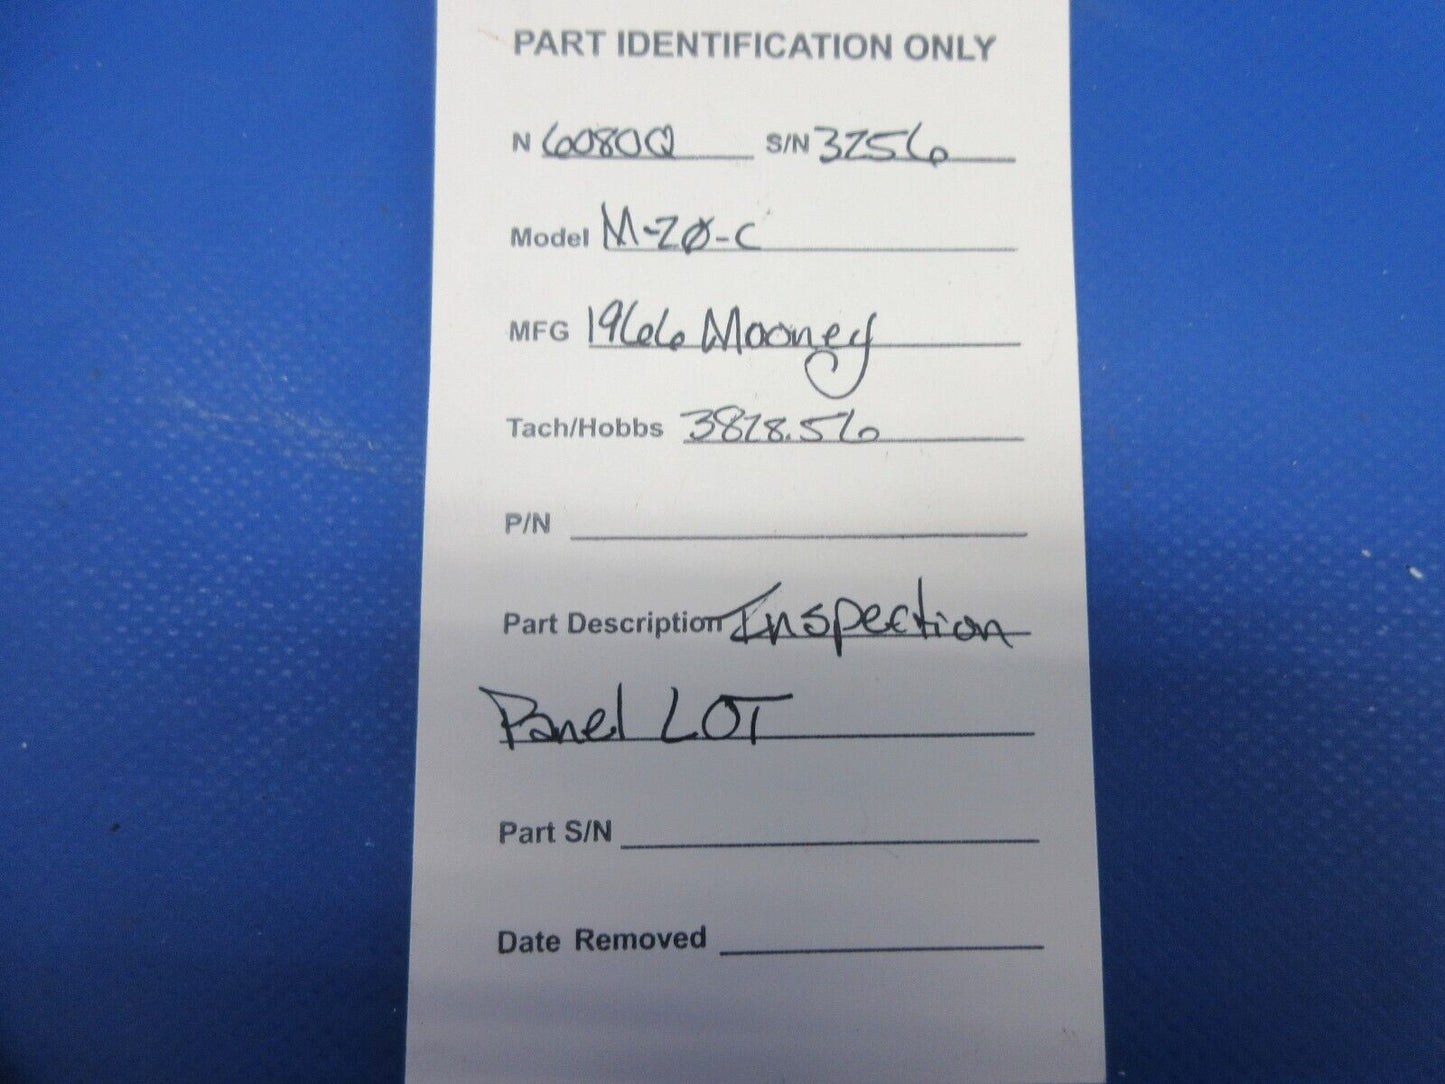 PART IDENTIFICATION ONLY
N 6080Q S/N 3256
Model M-20-C
MFG 1966 Mooney
Tach/Hobbs 3828.56
P/N
Part Description Inspection
Panel LOT
Part S/N
Date Removed